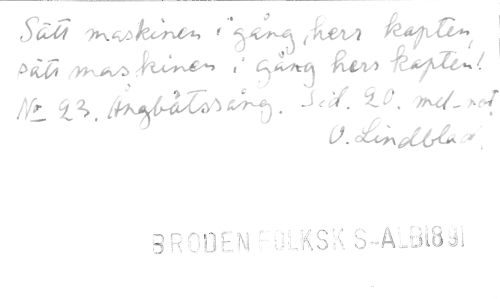 Sätt maskinen i gång, herr kapten,
sätt maskinen i gång herr kapten!
No 23. Ångbåtssång. Sid. 20. mel-not.
O. Lindblad.
BRODEN FOLKSK S-ALB1891